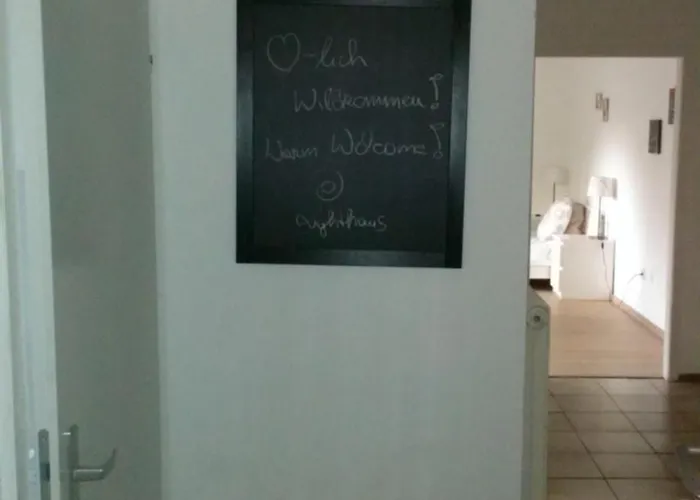 ♡-lich
Willkommen!
Warm Welcome!